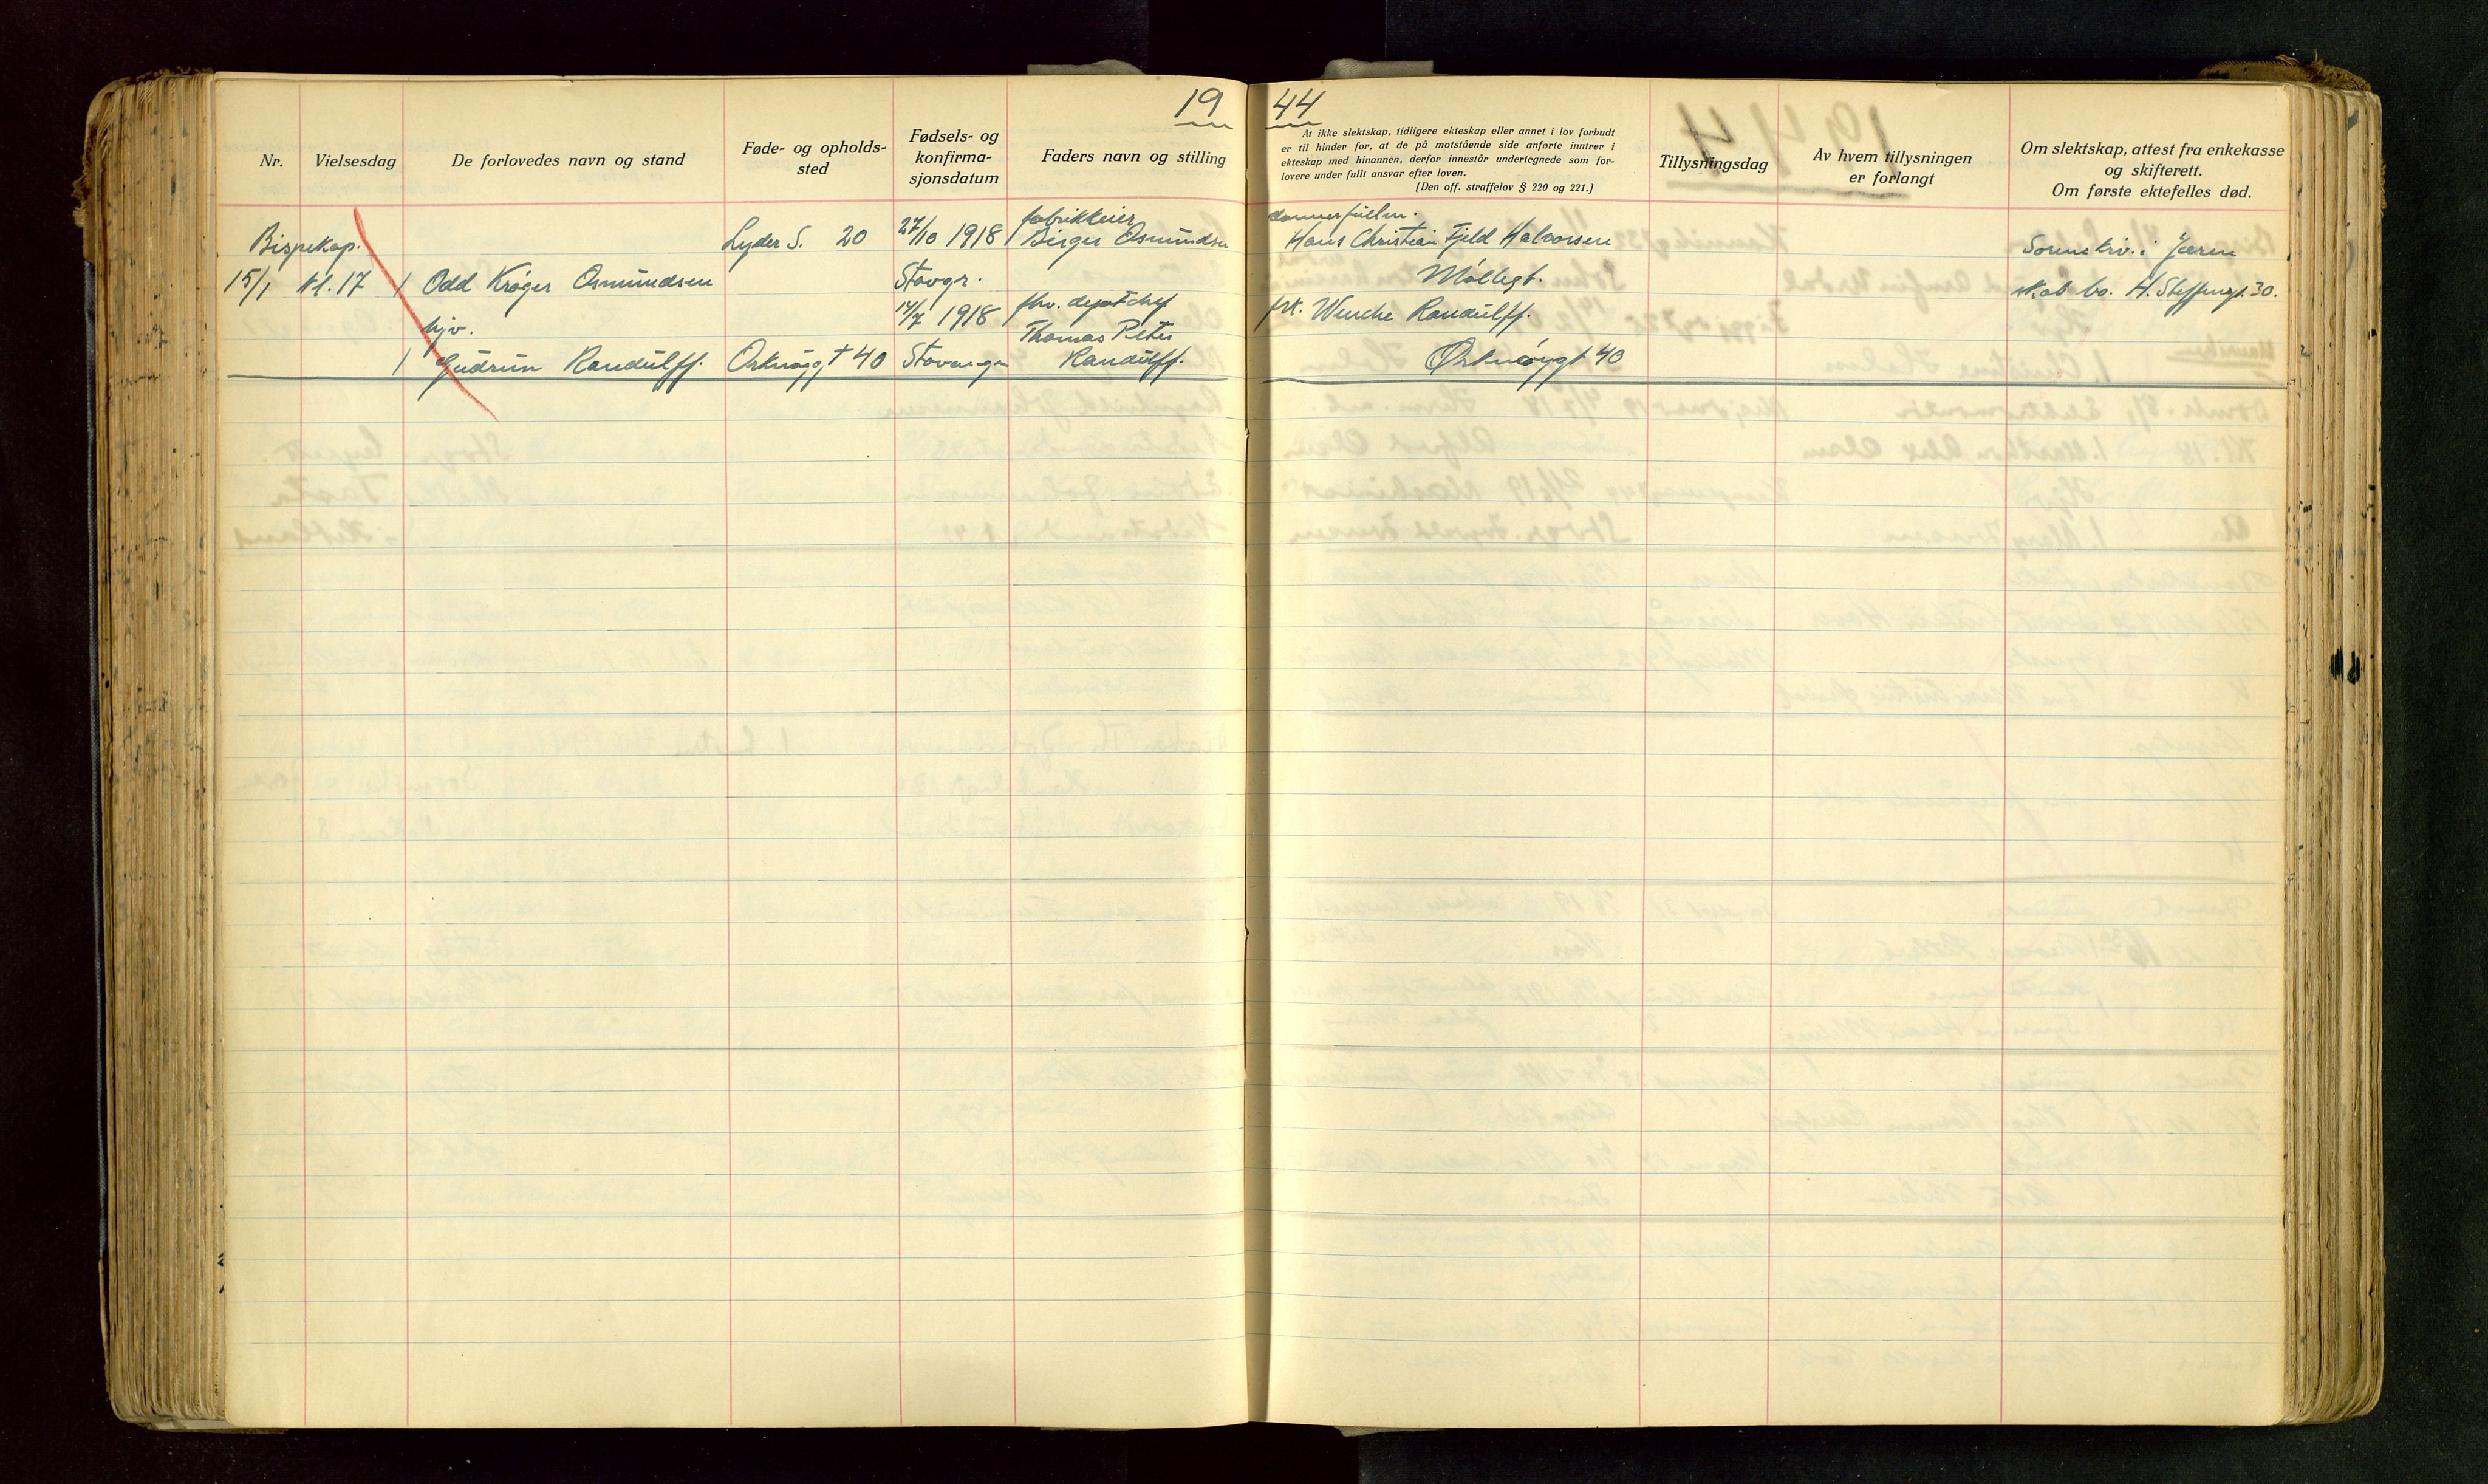 19 44
Nr.
Vielsesdag
De forlovedes navn og stand
Føde- og opholds-
sted
Fødsels- og
konfirma-
sjonsdatum
Faders navn og stilling
At ikke slektskap, tidligere ekteskap eller annet i lov forbudt
er til hinder for, at de på motstående side anførte inntrer i
ekteskap med hinannen, derfor innestår undertegnede som for-
lovere under fullt ansvar efter loven.
(Den off. straffelov § 220 og 221.)
Tillysningsdag
Av hvem tillysningen
er forlangt
Om slektskap, attest fra enkekasse
og skifterett.
Om første ektefelles død.
Bispekap.
15/1 kl. 17
1 Odd Krøger Osmundsen
hjv.
1 Gudrun Randulff.
Lyder S. 20
Orknøygt 40
27/10 1918
Stavgr.
14/7 1918
Stavanger
fabrikkeier
Birger Osmundsen
fhv.
Thomas Peter
Randulff.
Hans Christian Fjeld Halvorsen
Møllegt.
frk. Wenche Randulff.
Orknøygt 40
Sorenskriv. i Jæren
skab bo. H. Steffensgt. 30.